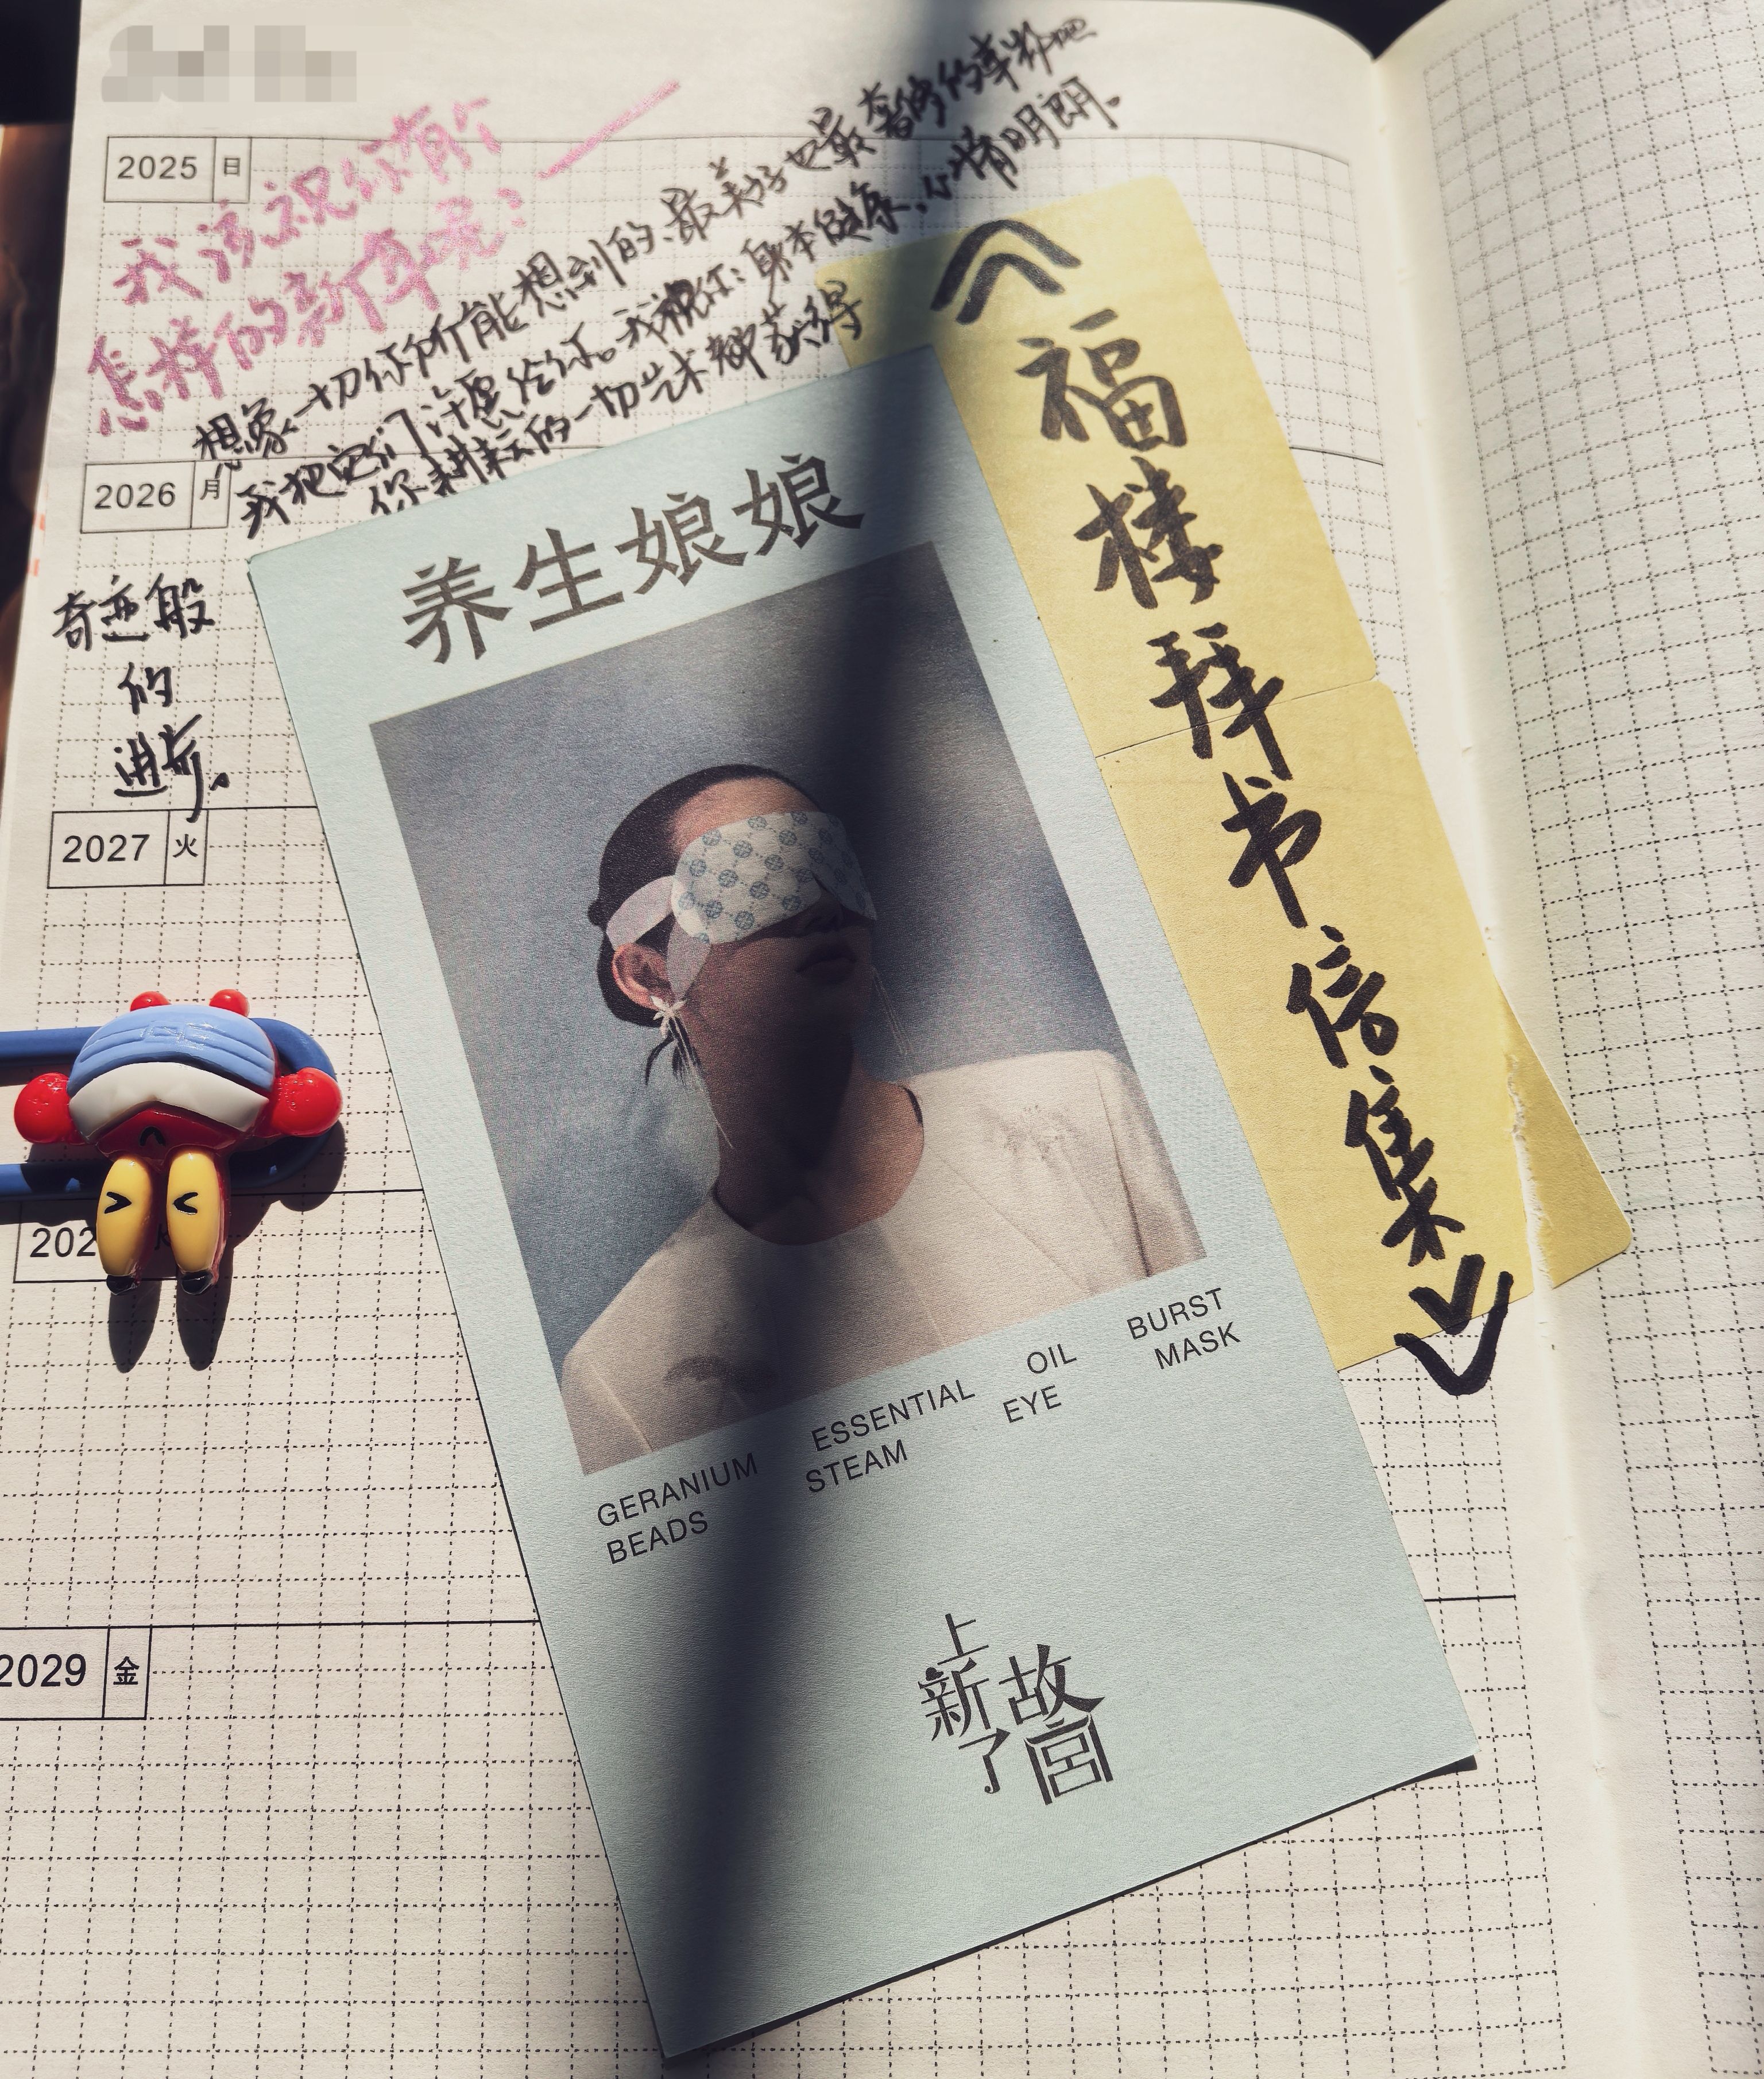 2025 日
我该祝你有个
怎样的新年呢：—
想象一切你所能想到的、最美好也最奢侈的事物吧
我把它们许愿给你。我祝你：身体健康，心情明朗.
你耕耘的一切艺术都获得
2026 月
奇迹般
的
进步。
2027 火
202
2029 金
《福楼拜书信集》
养生娘娘
GERANIUM ESSENTIAL OIL BURST
BEADS STEAM EYE MASK
上新了
故宫